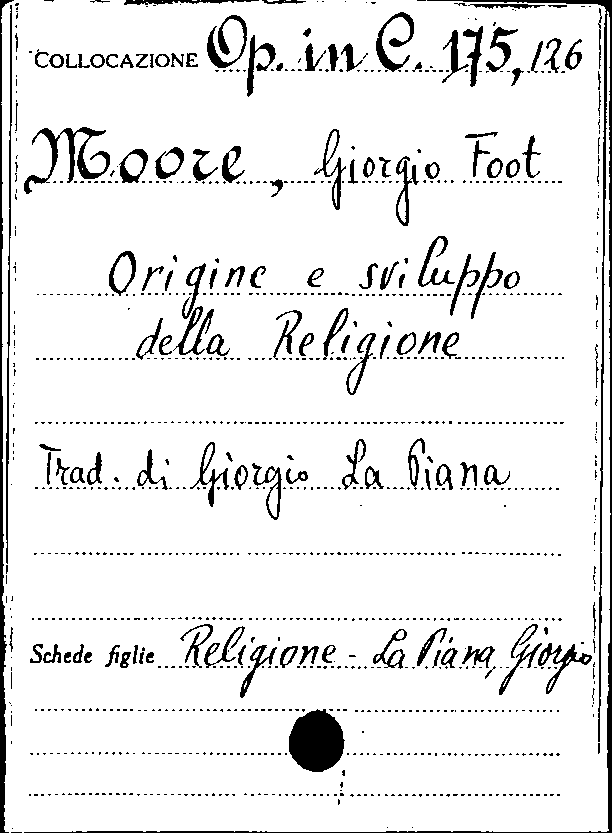 COLLOCAZIONE Op. in C. 175, 126
Moore, Giorgio Foot
Origine e sviluppo
della Religione
Trad. di Giorgio La Piana
Schede figlie Religione - La Piana, Giorgio